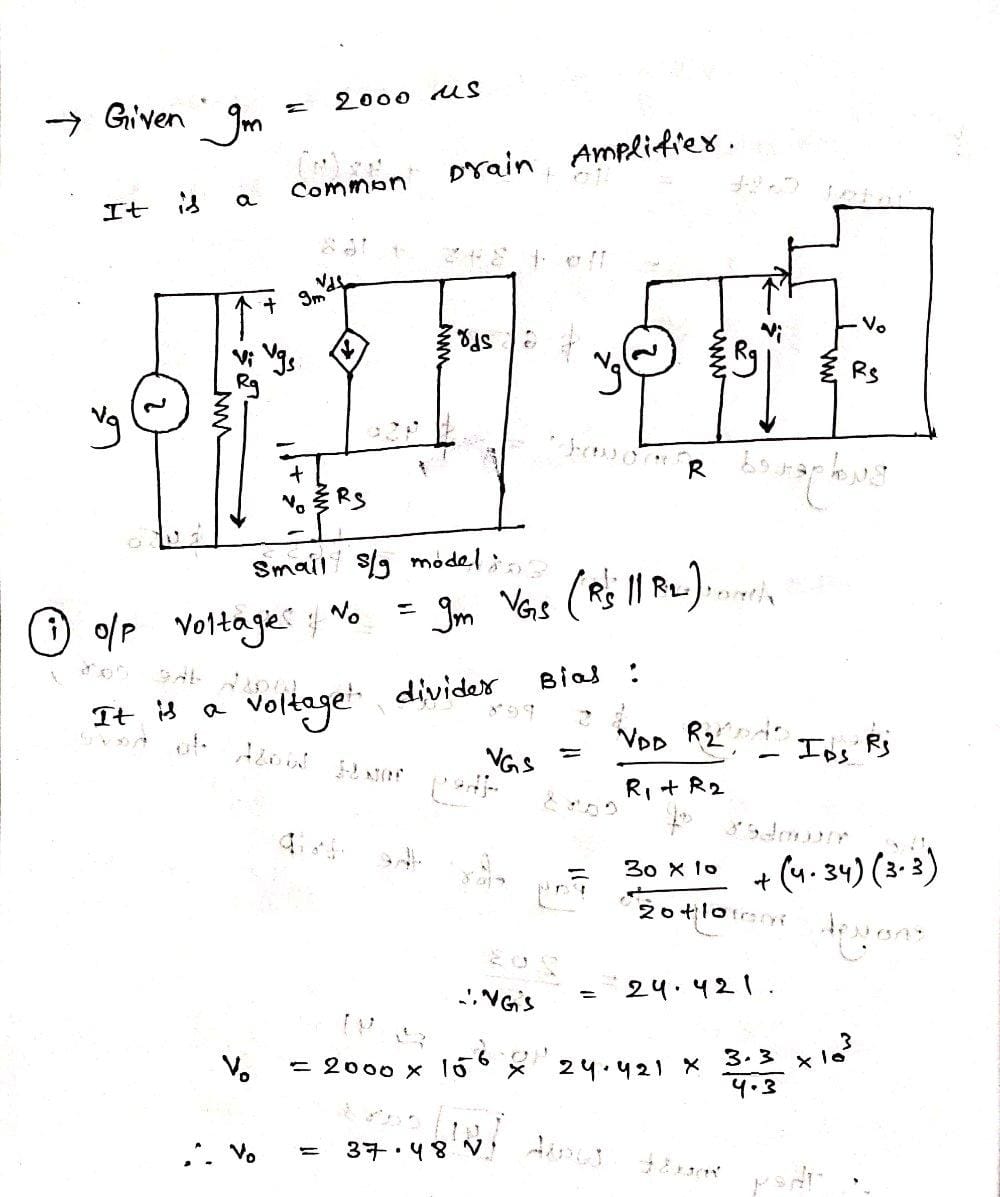 → Given gm = 2000 μs
It is a common Drain Amplifier.
gm Vds
+
Vi Vgs
Rg
rds
Vg
+
Vo Rs
-
Vi
Vo
Vg
Rg
Rs
R
Small s/g model :
(i) o/p Voltage Vo = gm VGS (Rs || RL)
It is a Voltage divider Bias :
VGS = VDD R2 / R1 + R2 - IDS Rs
= 30 x 10 / 20+10 + (4.34) (3.3)
∴ VGS = 24.421.
Vo = 2000 x 10^-6 x 24.421 x 3.3 / 4.3 x 10^3
∴ Vo = 37.48 V